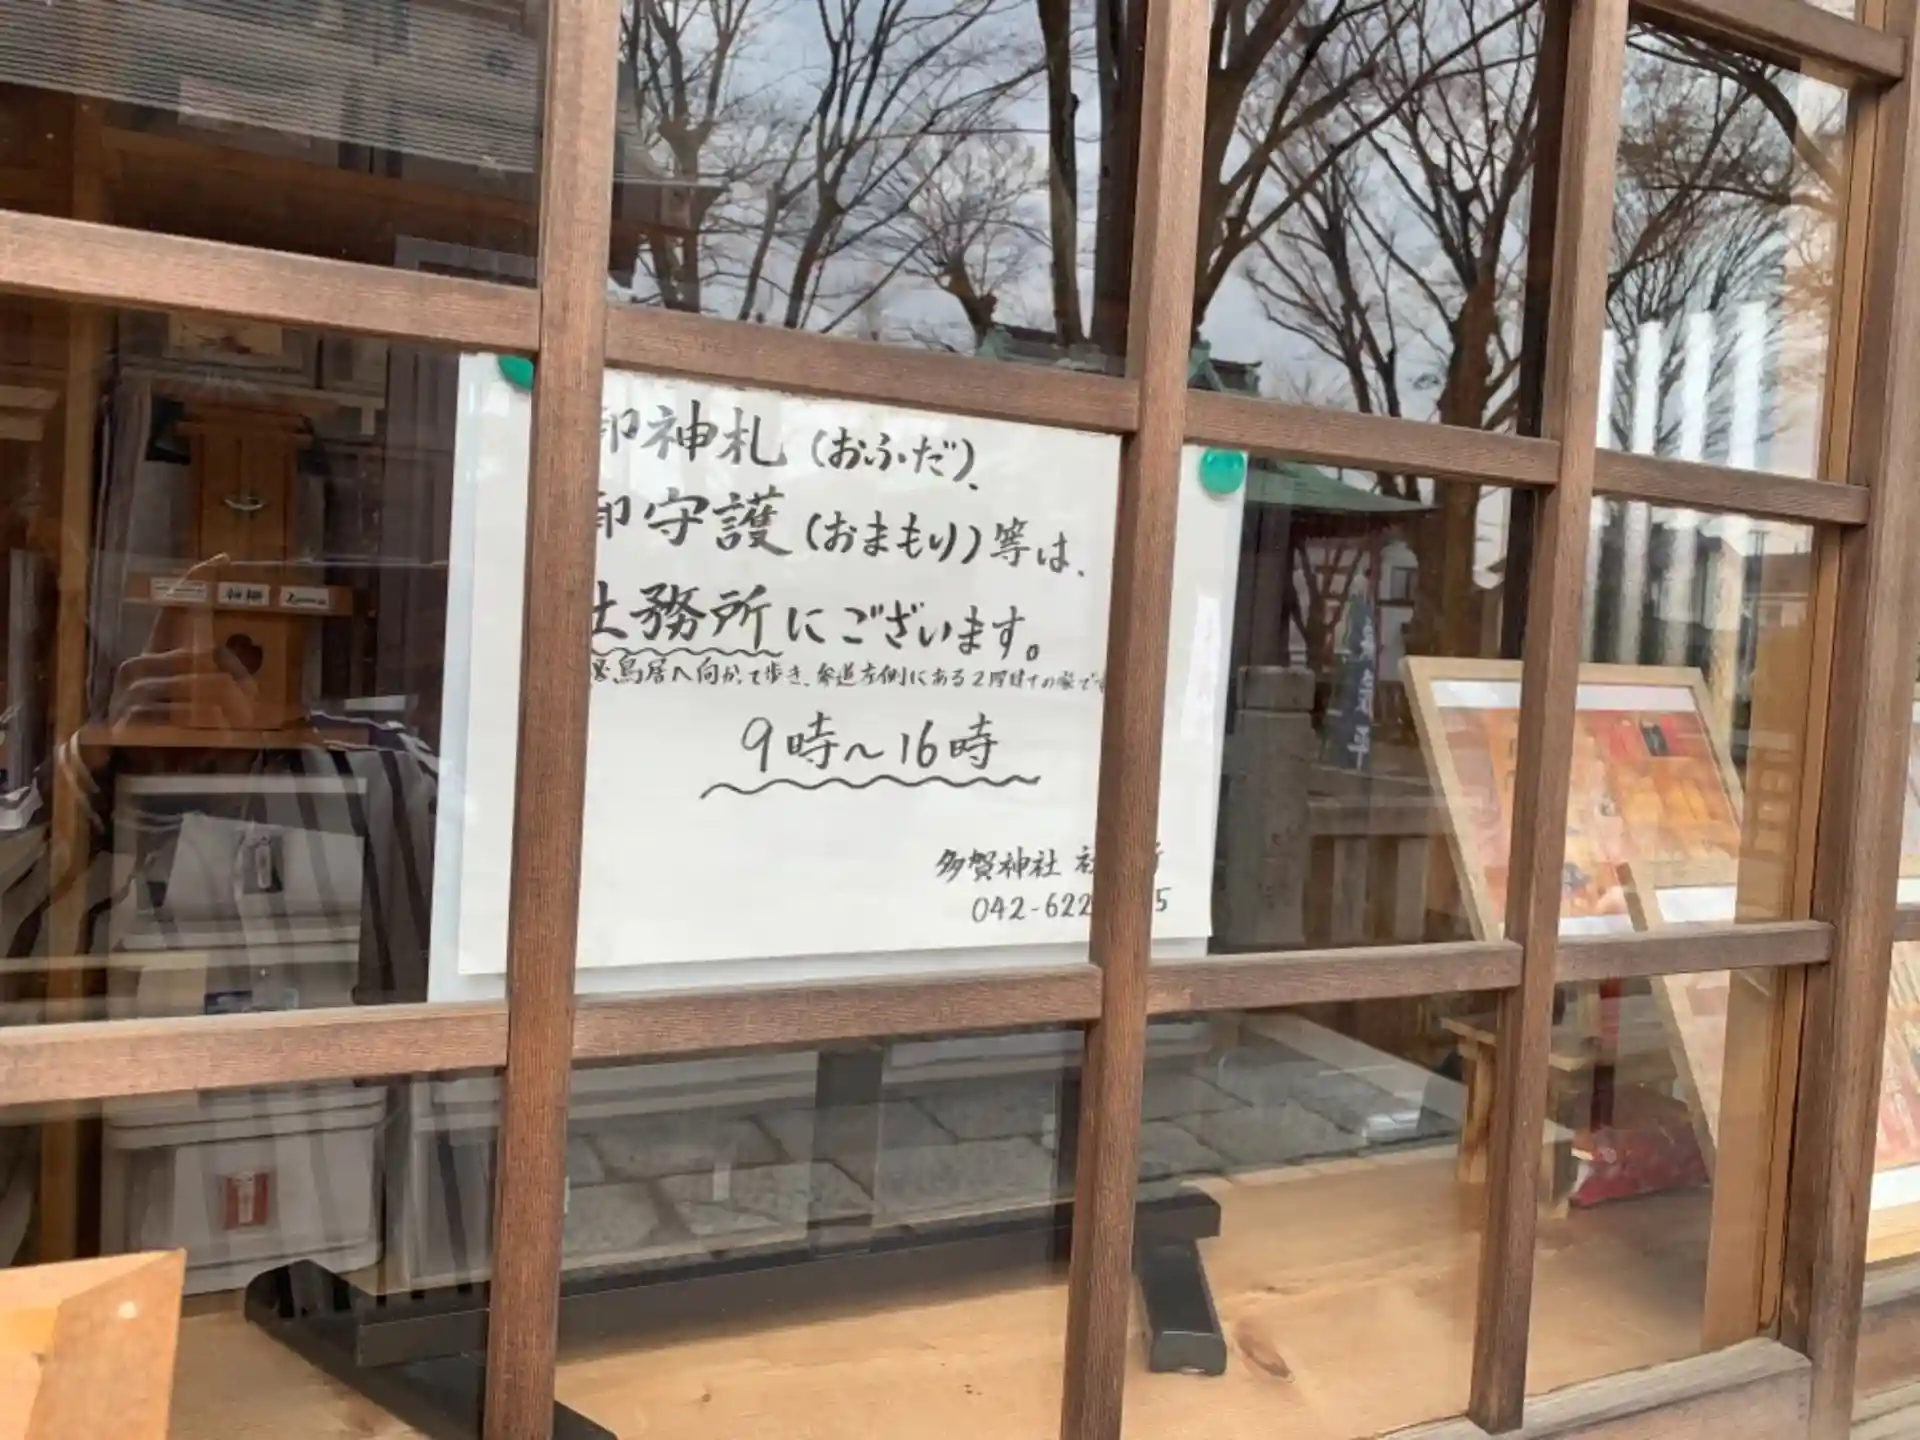 神札(おふだ)、
守護(おまもり)等は、
務所にございます。
鳥居へ向かって歩き、参道左側にある2階建ての家で
9時~16時
多賀神社 社
042-622 5
神棚